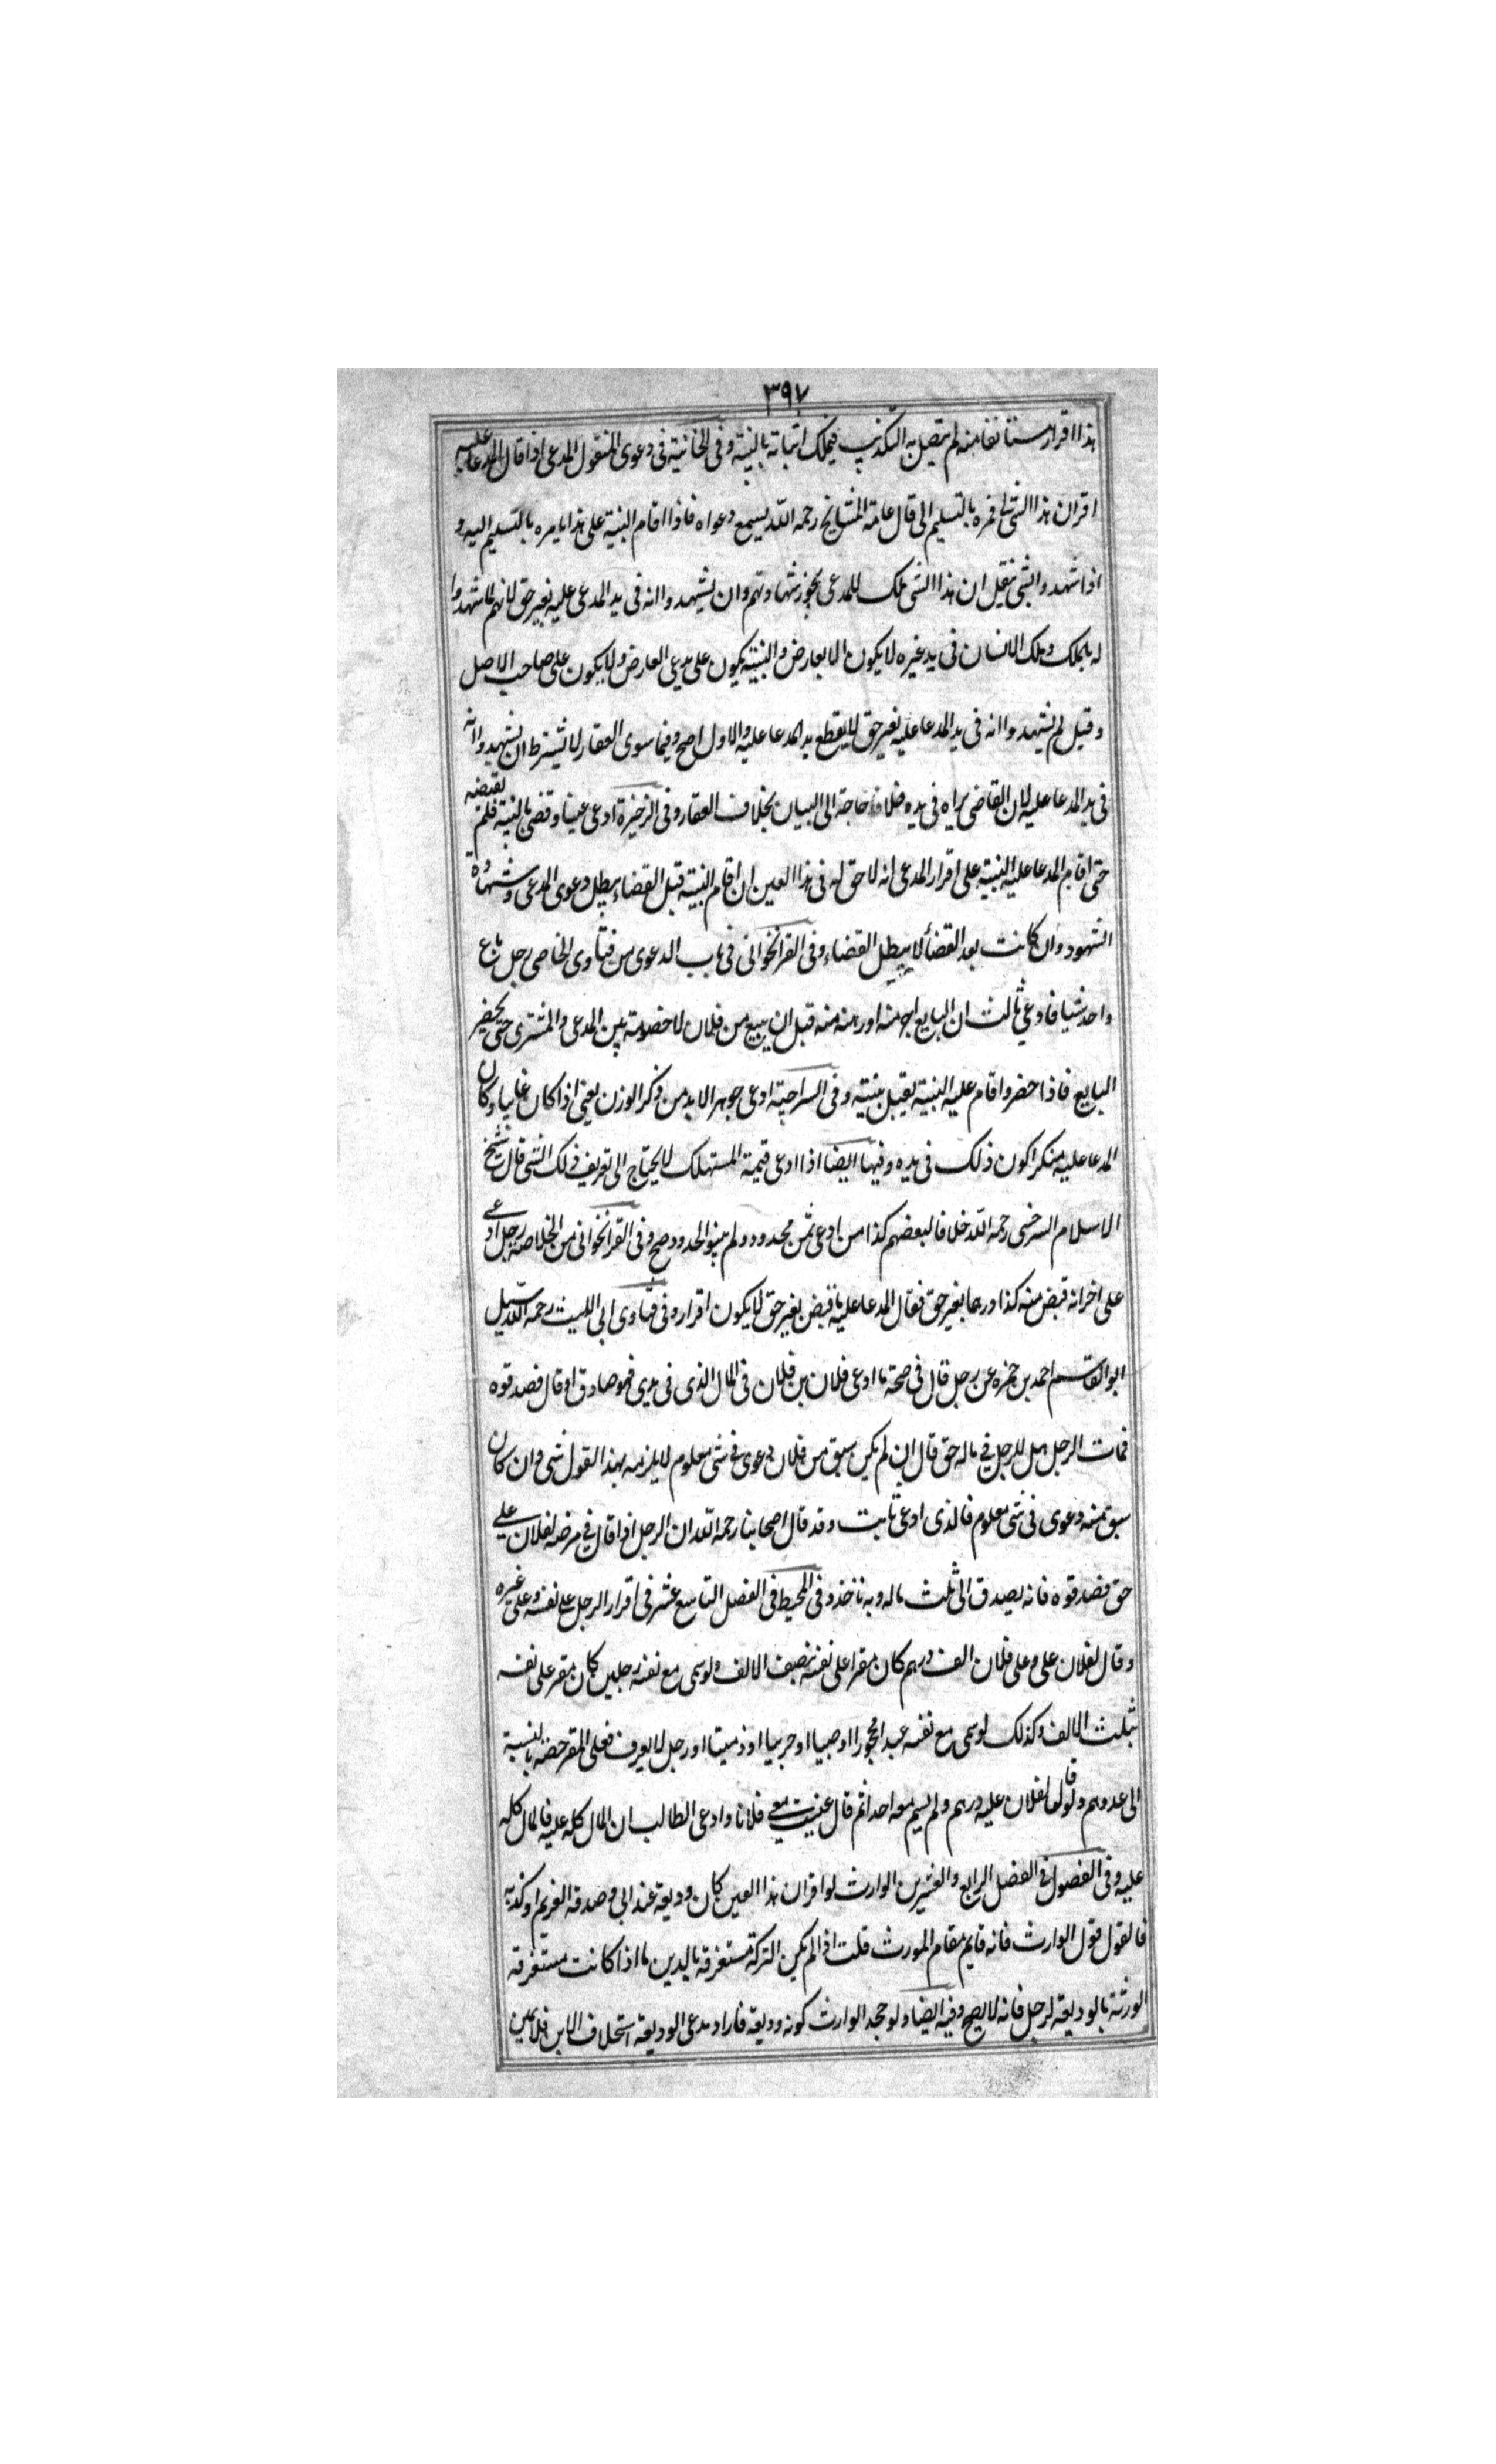 ٣٩٧
هذا اقرار مستانفا منه لم يتصل به التكذيب فيملك اثباته بالبينة وفى الخانية فى دعوى المنقول المدعى اذا قال المدعا عليه
اقر ان هذا الشى لى فمره بالتسليم الى قال عامة المشايخ رحمه الله يسمع دعواه فاذا اقام البينة على هذا يامره بالتسليم اليه و
اذا شهدوا بشى ينقل ان هذا الشى ملك للمدعى يجوز شهادتهم وان لم يشهدوا انه فى يد المدعى عليه بغير حق لانهم لما شهدوا
له بالملك وملك الانسان فى يد غيره لا يكون الا بعارض والبينة يكون على مدعى العارض ولا يكون على صاحب الاصل
وقيل لم يشهدوا انه فى يد المدعا عليه بغير حق لا يقطع يد المدعا عليه والاول اصح وفيما سوى العقار لا يشترط ان يشهدوا انه
فى يد المدعا عليه لان القاضى يراه فى يده فلا حاجة الى البيان بخلاف العقار وفى الزخيرة ادعى عينا وقضى بالبينة فلم يقبضه
حتى اقام المدعا عليه البينة على اقرار المدعى انه لا حق له فى هذا العين ان اقام البينة قبل القضاء يبطل دعوى المدعى وشهادة
الشهود وان كانت بعد القضأ لا يبطل القضاء وفى القراخوانى فى باب الدعوى من فتاوى الخاصى رجل باع
واحد شيا فادعى ثالث ان البايع اجر منه او رهنه منه قبل ان يبيع من فلان لا خصومة بين المدعى والمشترى حتى يحضر
البايع فاذا حضر واقام عليه البينة يقبل بينته وفى السراجية ادعى جوهرا لابد من ذكر الوزن يعنى اذا كان غايبا وكان
المدعا عليه منكرا كون ذلك فى يده وفيها ايضا اذا ادعى قيمة المستهلك لا يحتاج الى تعريف ذلك الشى قال شيخ
الاسلام السرخسى رحمه الله خلافا لبعضهم كذا من ادعى ثمن محدود ولم يبينوا الحدود صح وفى القراخوانى من الخلاصة رجل ادعى
على اخر انه قبض منه كذا درهما بغير حق فقال المدعا عليه ما قبض بغير حق لا يكون اقرار وفى فتاوى ابى الليث رحمه الله سيل
ابو القاسم احمد بن حمزه عن رجل قال فى صحة ما ادعى فلان بن فلان فى المال الذى فى يدى فهو صادق او قال فصدقوه
فمات الرجل هل للرجل فى ماله حق قال ان لم يكن سبق من فلان دعوى فى شى معلوم لا يلزمه بهذا القول شى وان كان
سبق منه دعوى فى شى معلوم فالذى ادعى ثابت وقد قال اصحابنا رحمه الله ان الرجل اذا قال فى مرضه لفلان على
حق فصدقوه فانه يصدق الى ثلث ماله وبه ناخذ وفى المحيط فى الفصل التاسع عشر فى اقرار الرجل على نفسه وعلى غيره
وقال لفلان على وعلى فلان الف درهم كان مقرا على نفسه نصف الالف ولو سمى مع نفسه رجلين كان مقر على نفسه
بثلث الالف وكذلك لو سمى مع نفسه عبدا محجورا او صبيا او حربيا او ذميا او رجل لا يعرف فعلى المقر حصة بالنسبة
الى عددهم ولو قال لفلان عليه درهم ولم يسم معه احدا ثم قال عنيت معى فلانا وادعى الطالب ان المال كله عليه فالمال كله
عليه وفى الفصول فى الفصل الرابع والعشرين الوارث لو اقر ان هذا العين كان وديعة عند ابى وصدقه الغريم او كذبه
فالقول قول الوارث فانه قايم مقام المورث قلت اذا لم يكن التركة مستغرقة بالدين ما اذا كانت مستغرقة
الورثة بالوديعة لرجل فانه لا يصح وفيه ايضا ولو جحد الوارث كونه وديعة فاراد مدعى الوديعة استحلاف الابن فلا يمين